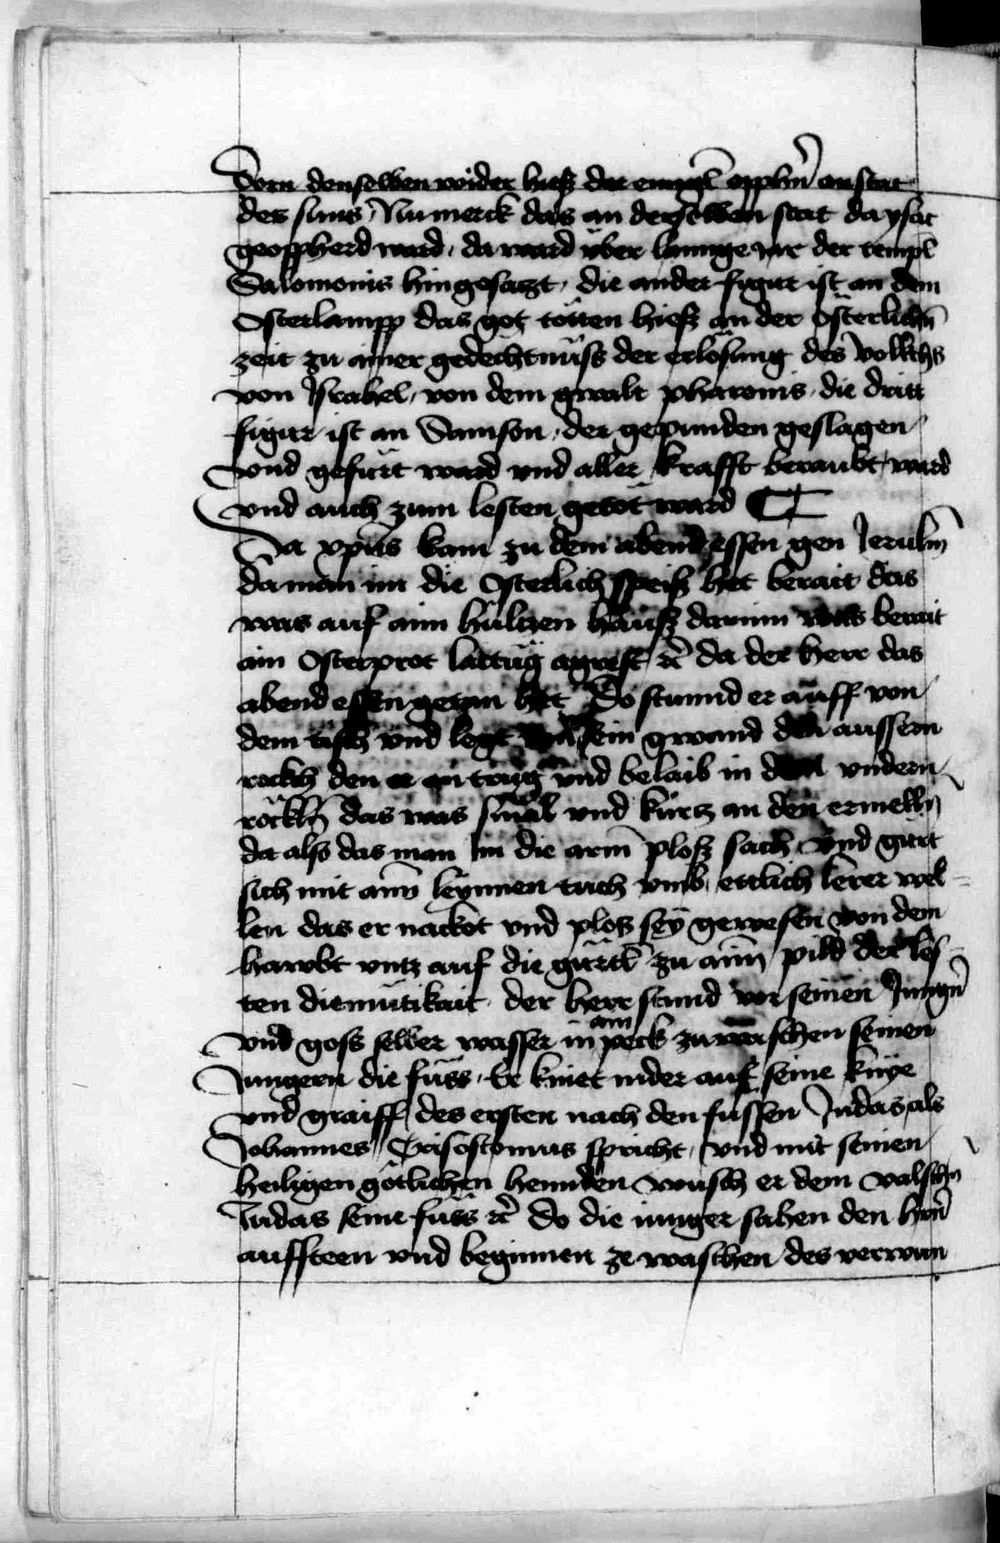 Dorn denselben wider hiess der enngl opphrn anstat
des suns / Nu merck das an derselben stat da ysac
geoppherd ward / da ward über lannge iar der templ
Salomonis hin gesatzt / die ander figur ist an dem
Osterlampp das got tötten hiess an der österlichn
zeit zu ainer gedechtnüss der erlösung des volkchs
von Israhel / von dem gwalt pharonis / die dritt
figur ist an Samson / der gepunden geslagen
vnd gefürt ward vnd aller krafft beraubt ward
vnd auch zum lesten getöt ward
Da xpūs kam zu dem abend essen gen Jerulm̄
da man im die Osterlich speiss het berait das
was auf ainn hültzen hauss darinn was berait
ain Osterprot lattüg agrest ⁊c̄ da der herr das
abend essen getan het Do stuend er auff von
dem tisch vnd legt sein gwand den aussern
rockch den er an trug vnd belaib in dem vndern
röckln̄ das was smal vnd kürtz an den ermelln̄
da alss das man Im die arm ploss sach / vnd gurt
sich mit ainn̄ leynnen tuch vmb / ettlich lerer wel-
len das er nackot vnd ploss sey gewesen von dem
hawbt vntz auf die gürtl zu ainn̄ pild der les-
ten diemütikait / der herr stund vor seinen Jungrn̄
vnd goss selber wasser in ain peck zu waschen seinen
Jungern die füss / Er kniet nider auf seine knye
vnd graiff des ersten nach den füssen Judas / als
Johannes Crisostomus spricht / vnd mit seinen
heiligen götlichen hennden wusch er dem valschn̄
Judas seine füss ⁊c̄ Do die iunger sahen den hern̄
auffsteen vnd beginnen ze waschen des verwun